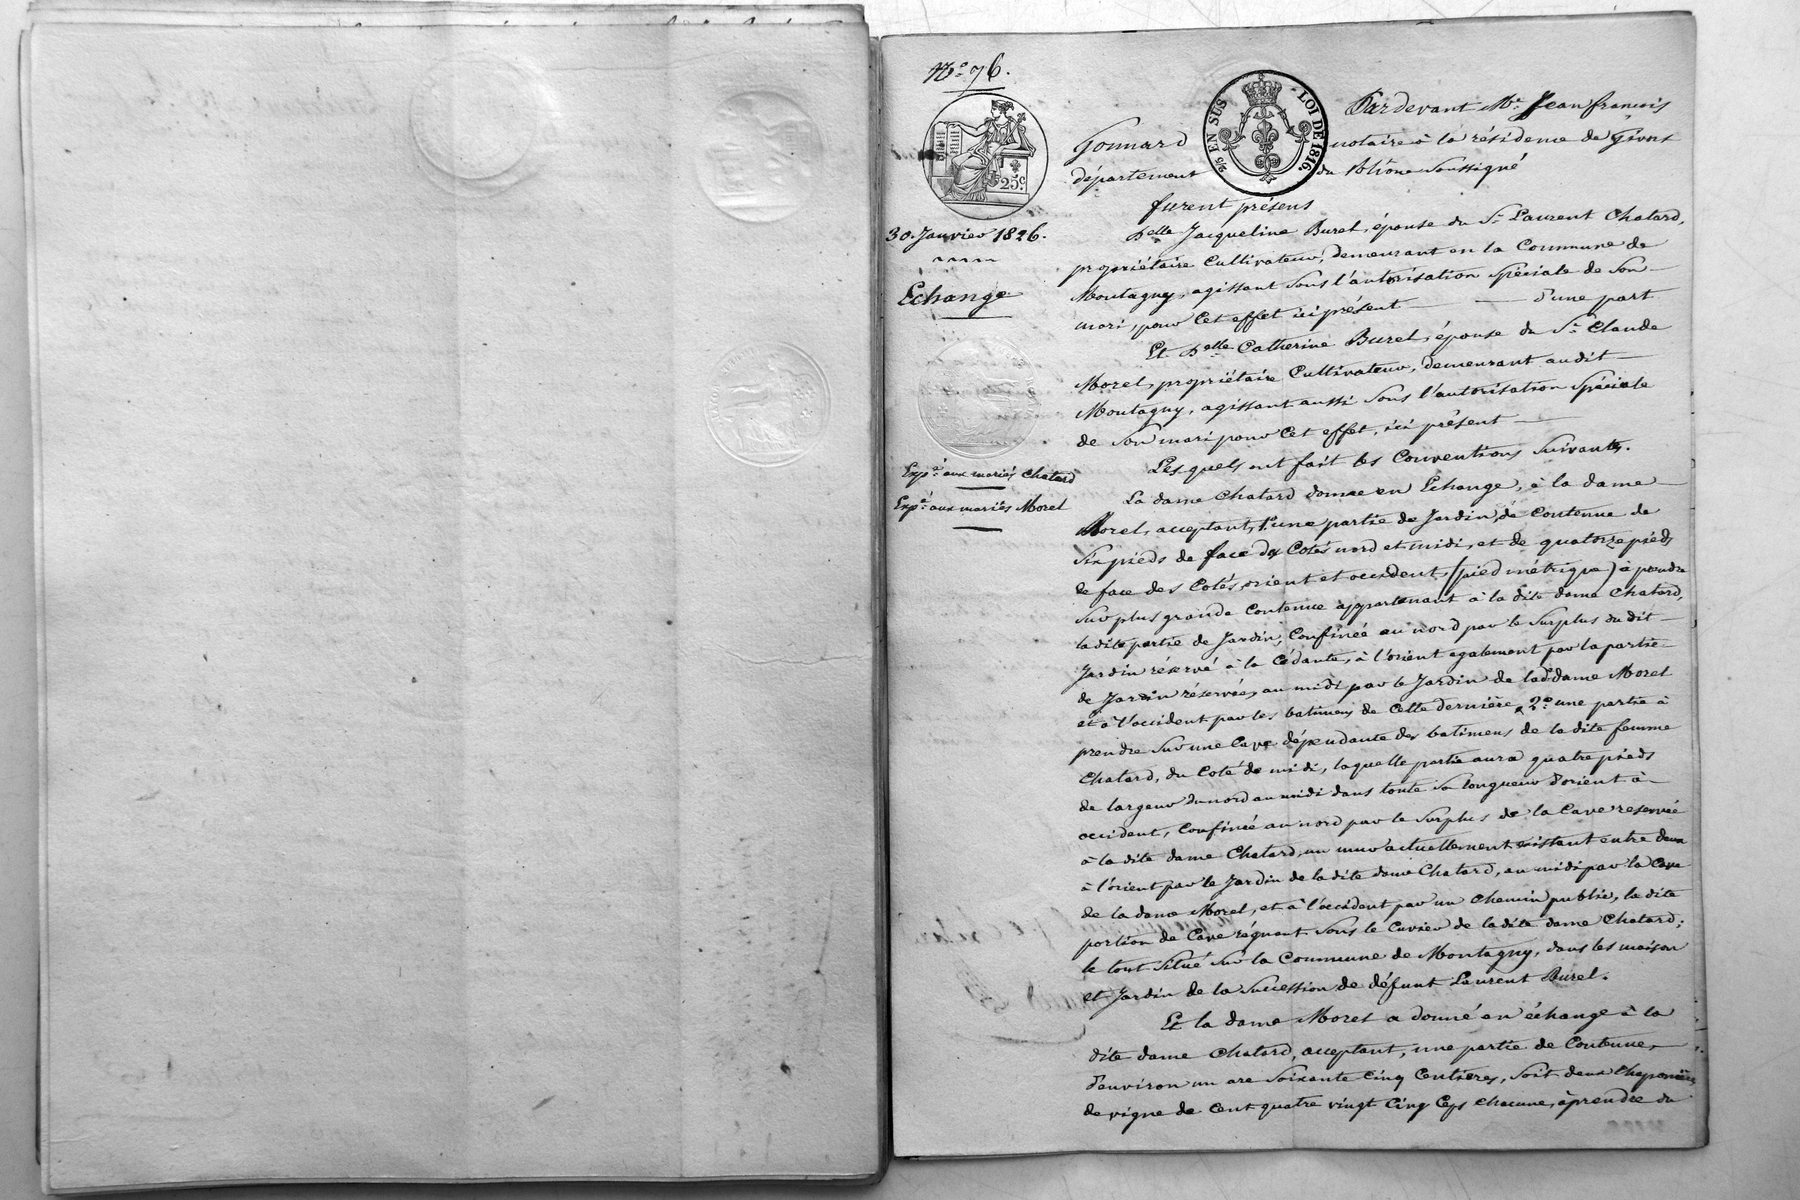 N.º 76.
25c
30. Janvier 1826.
Echange
Exp.é aux mariés Chatard
Exp.é aux mariés Morel
2/5 EN SUS LOI DE 1816.
Pardevant M.e Jean françois
Gonnard notaire à la résidence de Givors
département du Rhône Soussigné
furent présens
D.elle Jacqueline Burel, épouse du S.r Laurent Chatard,
propriétaire Cultivateur, demeurant en la Commune de
Montagny, agissant sous l'autorisation Spéciale de Son
mari, pour Cet effet ici présent — d'une part
Et D.elle Catherine Burel, épouse du S.r Claude
Morel, propriétaire Cultivateur, demeurant audit —
Montagny, agissant aussi Sous l'autorisation Spéciale
de Son mari pour Cet effet, ici présent —
Lesquels ont fait les Conventions Suivantes.
La dame Chatard donne en Echange, à la dame —
Morel, acceptant, 1.º une partie de Jardin, de Contenue de
Six pieds de face des Cotés nord et midi, et de quatorze pieds
de face des Cotés, orient et occident, (pied métrique) à prendre
Sur plus grande Contenue appartenant à la dite dame Chatard,
la dite partie de Jardin, Confinée au nord par le Surplus du dit —
Jardin réservé à la Cédante, à l'orient egalement par la partie
de Jardin réservée, au midi par le Jardin de lad.e dame Morel
et à l'occident par les batimens de Cette dernière, 2.º une partie à
prendre Sur une Cave dépendante des batimens de la dite femme
Chatard, du Coté de midi, laquelle partie aura quatre pieds
de largeur du nord au midi dans toute sa longueur d'orient à —
occident, Confinée au nord par le Surplus de la Cave reservée
à la dite dame Chatard, un mur actuellement existant entre deux
à l'orient par le Jardin de la dite dame Chatard, au midi par la Cave
de la dame Morel, et à l'occident par un Chemin public, la dite
portion de Cave régnant Sous le Cuvier de la dite dame Chatard;
le tout Situé Sur la Commune de Montagny, dans les maison
et Jardin de la Succession de défunt Laurent Burel.
Et la dame Morel a donné en échange à la
dite dame Chatard, acceptant, une partie de Contenue, —
d'environ un are Soixante Cinq Centiares, Soit deux
de vigne de Cent quatre vingt Cinq Ceps Chacune, à prendre du